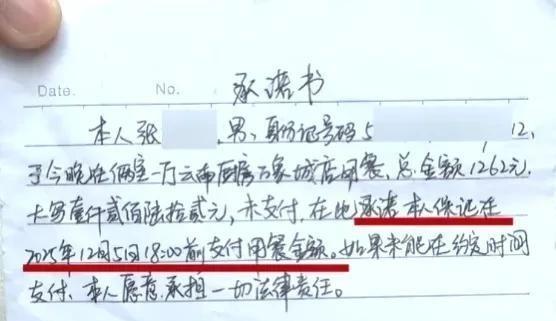 承诺书
Date. No.
本人张 男、身份证号码5 12,
于今晚在俩室一厅云南厨房万象城店用餐、总金额1262元.
大写壹仟贰佰陆拾贰元,未支付.在此承诺本人保证在
2025年12月5日18:00前支付用餐金额。如果未能在约定时间
支付、本人愿意承担一切法律责任。